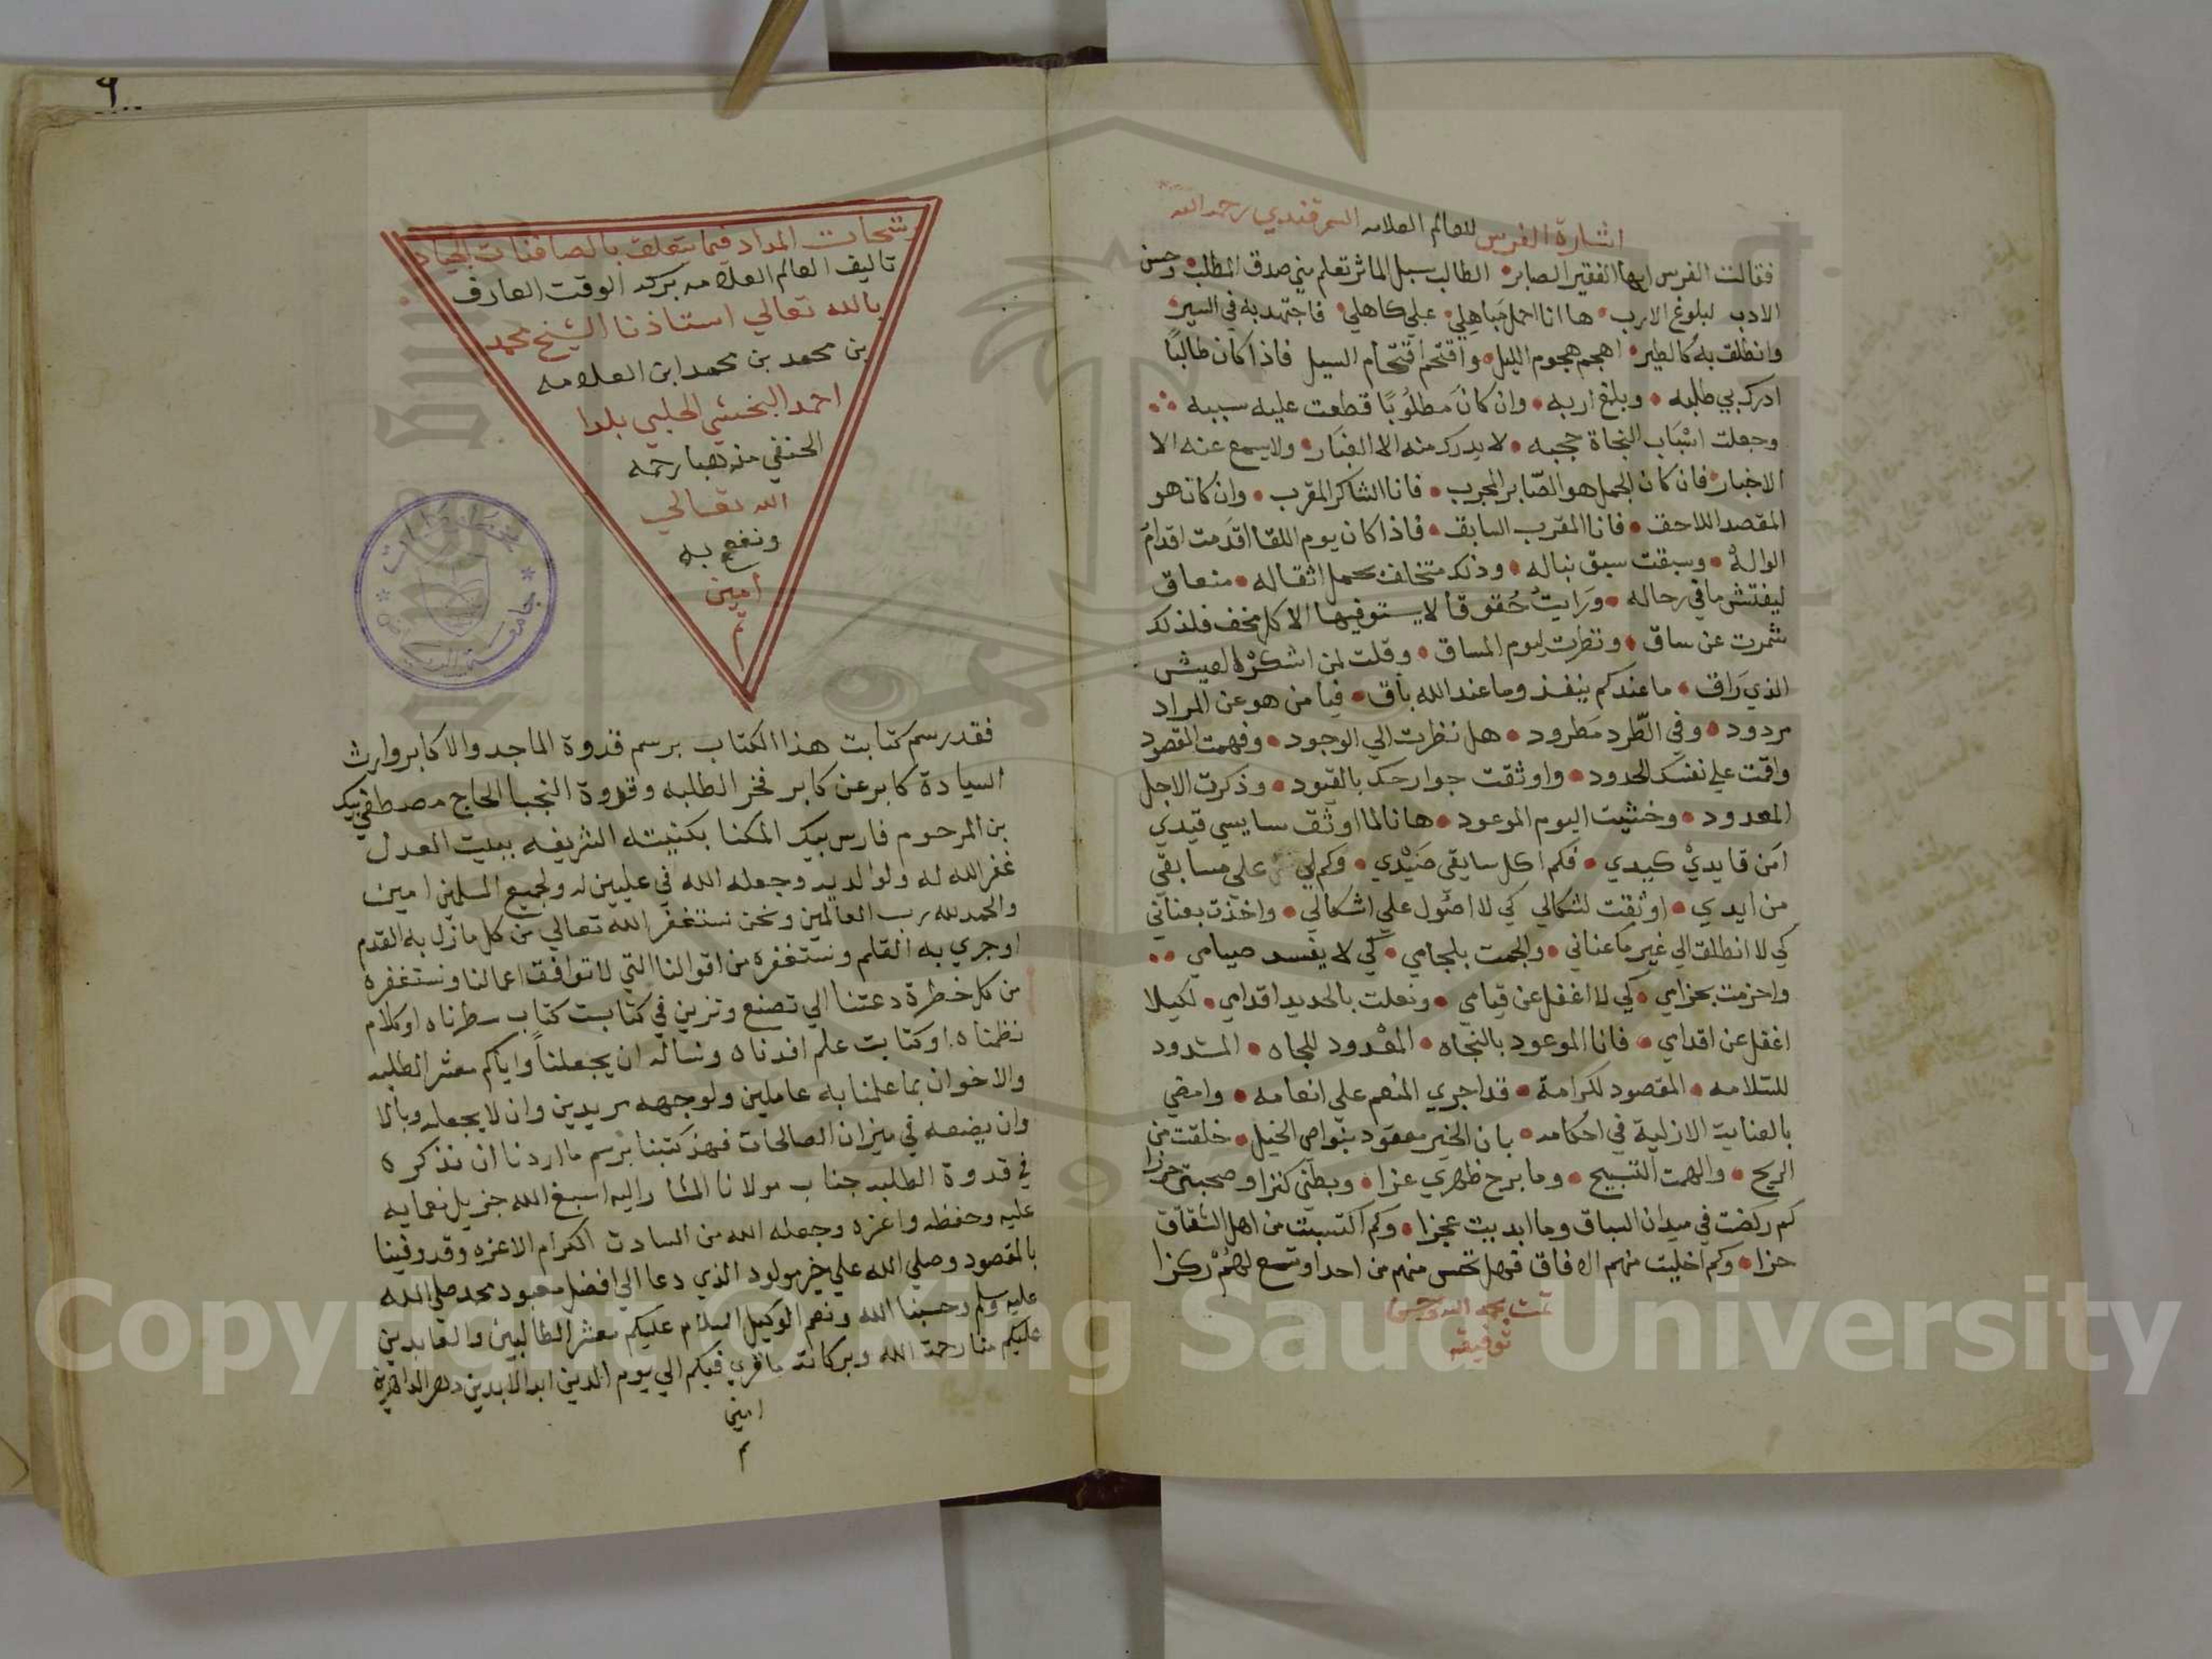 اشارة الفرس للعالم العلامه السمرقندي رحمه الله
فقالت الفرس ايها الفقير الصابر الطالب سبل الماثر تعلم مني صدق الطلب وحسن
الادب لبلوغ الارب ها انا احمل مباهلي على كاهلي فاجتهد به في السير
وانطلق به كالطير اهجم هجوم الليل واقتحم اقتحام السيل فاذا كان طالبًا
ادرك بي طلبه وبلغ اربه وان كان مطلوبًا قطعت عليه سببه
وجعلت اسباب النجاة حجبه لا يدرك منه الا الغبار ولا يسمع عنه الا
الاخبار فان كان الجمل هو الصابر المجرب فانا الشاكر المقرب وان كان هو
المقصد اللاحق فانا المقرب السابق فاذا كان يوم اللقا اقدمت اقدام
الواله وسبقت سبق نباله وذلك متخلف بحمل اثقاله منعاق
ليفتش ما في رحاله ورايت حقوقا لا يستوفيها الا كل مخف فلذلك
شمرت عن ساق ونظرت ليوم المساق وقلت لمن اسكره العيش
الذي راق ما عندكم ينفد وما عند الله باق فيا من هو عن المراد
مردود وفي الطرد مطرود هل نظرت الي الوجود وفهمت المقصود
واقمت على نفسك الحدود واوثقت جوارحك بالقيود وذكرت الاجل
المعدود وخشيت اليوم الموعود ها انا لما اوثق سايسي قيدي
امن قايدي كيدي فكم اكل سايقي صيدي وكم لي علي مسابقي
من ايدي اوثقت لشكالي كي لا اصول علي اشكالي واخذت بعناني
كي لا انطلق الي غير ما عناني والجمت بلجامي كي لا يفسد صيامي
واحزمت بحزامي كي لا اغفل عن قيامي ونعلت بالحديد اقدامي لكيلا
اغفل عن اقدامي فانا الموعود بالنجاه المعدود للجاه المشدود
للسلامه المقصود لكرامة قد اجري المنعم علي انعامه وامضي
بالعناية الازلية في احكامه بان الخير معقود بنواصي الخيل خلقت من
الريح والهمت التسبيح وما برح ظهري عزا وبطني كنزا وصحبتي حرزا
كم ركضت في ميدان السباق وما ابديت عجزا وكم اكتسبت من اهل الشقاق
حزا وكم اخليت منهم الافاق فهل تحس منهم من احد او تسمع لهم ركزا
تمت بحمد الله وحسن
توفيقه
٦
رشحات المداد فيما يتعلق بالصافنات الجياد
تاليف العالم العلامه بركة الوقت العارف
بالله تعالي استاذنا الشيخ محمد
بن محمد بن محمد ابن العلامه
احمد البخشي الحلبي بلدا
الحنفي مذهبا رحمه
الله تعالي
ونفع به
امين
م
فقد رسم كتابت هذا الكتاب برسم قدوة الماجد والاكابر وارث
السيادة كابر عن كابر فخر الطلبه وقدوة النجبا الحاج مصطفي بيك
بن المرحوم فارس بيك المكنا بكنيته الشريفه ببيت العدل
غفر الله له ولوالديه وجعله الله في عليين له ولجميع المسلمين امين
والحمد لله رب العالمين ونحن نستغفر الله تعالي من كل ما زل به القدم
او جري به القلم ونستغفره من اقوالنا التي لا توافق اعمالنا ونستغفره
من كل خطرة دعتنا الي تصنع وتزين في كتابت كتاب سطرناه او كلام
نظمناه او كتابت علم افدناه ونساله ان يجعلنا واياكم معشر الطلبه
والاخوان بما علمنا به عاملين ولوجهه مريدين وان لا يجعله وبالا
وان يضعه في ميزان الصالحات فهذ كتبنا برسم ما اردنا ان نذكره
في قدوة الطلبه جناب مولانا المشار اليه اسبغ الله جزيل نعمايه
عليه وحفظه واعزه وجعله الله من السادت الكرام الاعزه وقد وفينا
بالمقصود وصلي الله علي خير مولود الذي دعا الي افضل معبود محمد صلي الله
عليه وسلم وحسبنا الله ونعم الوكيل السلام عليكم معشر الطالبين والعابدين
عليكم منا رحمة الله وبركاته ما قري فيكم الي يوم الدين ابد الابدين ودهر الداهرين
امين
م
جامعة
Copyright © King Saud University